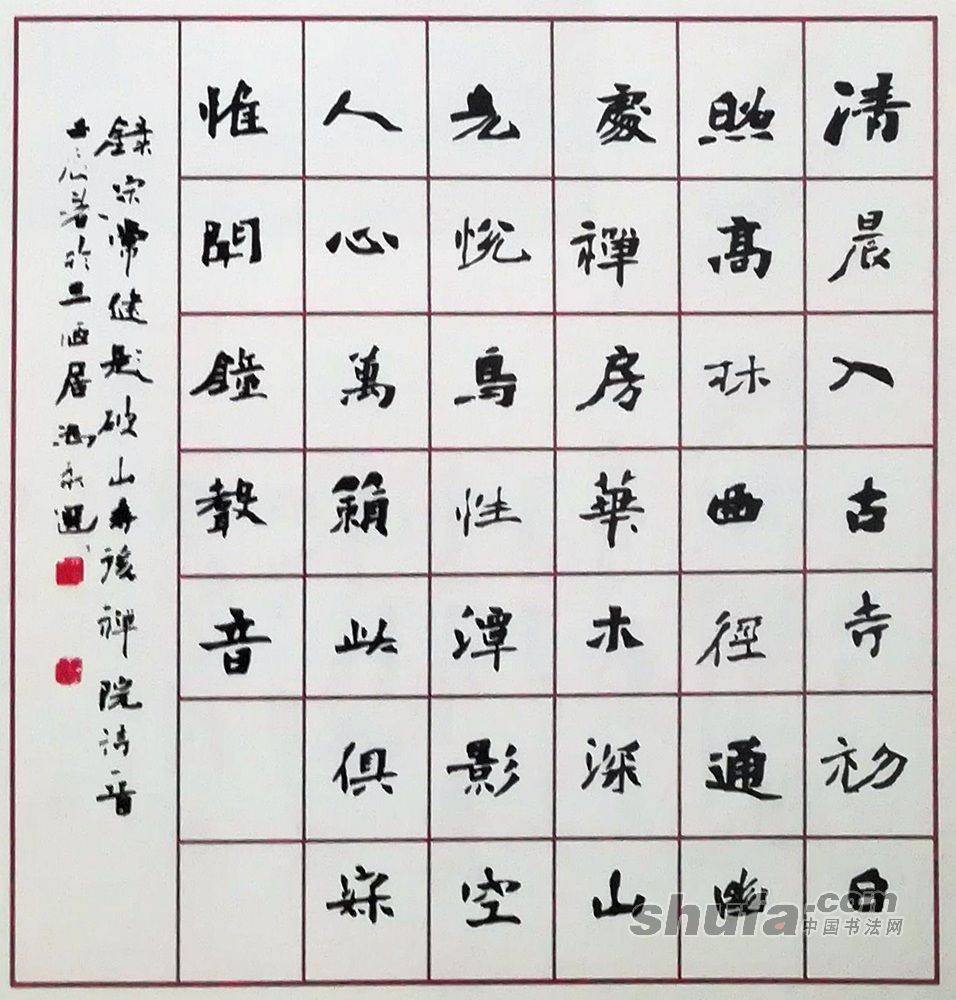 清晨入古寺初日
照高林曲徑通幽
處禪房華木深山
光悅鳥性潭影空
人心萬籟此俱寂
惟聞鐘磬音
錄宋常健題破山寺後禪院詩一首
於三酒居
shufa.com
中国书法网